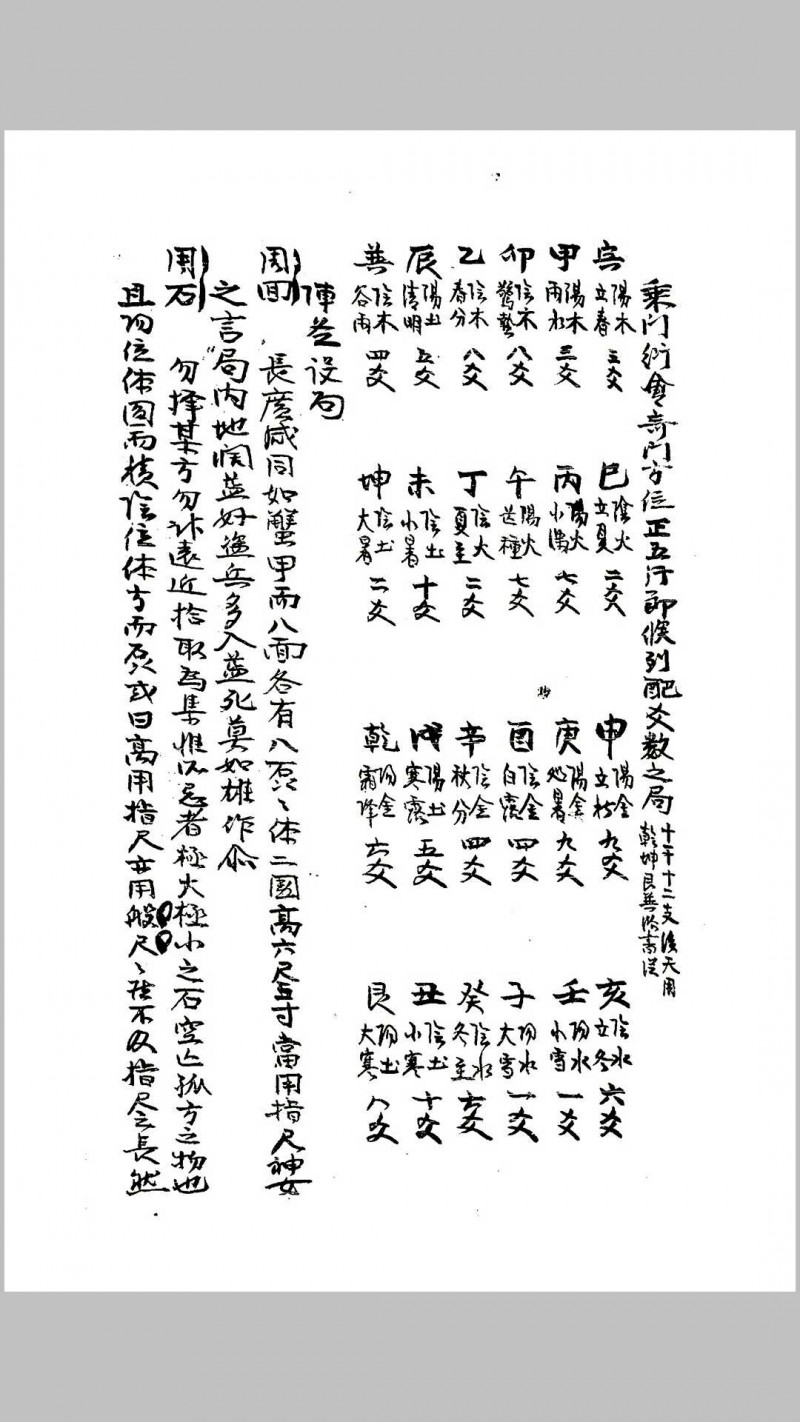 乘門衍會奇門方位正五行節候列配爻數之局 十干十二支後天用 乾坤艮巽
寅 陽木 立春 三爻
巳 陰火 立夏 二爻
申 陽金 立秋 九爻
亥 陰水 立冬 六爻
甲 陽木 雨水 三爻
丙 陽火 小滿 七爻
庚 陽金 处暑 九爻
壬 阳水 小雪 一爻
卯 陰木 驚蟄 八爻
午 陽火 芒種 七爻
酉 陰金 白露 四爻
子 阳水 大雪 一爻
乙 陰木 春分 八爻
丁 陰火 夏至 二爻
辛 陰金 秋分 四爻
癸 陰水 冬至 六爻
辰 陽土 清明 五爻
未 陰土 小暑 十爻
戌 陽土 寒露 五爻
丑 陰土 小寒 十爻
巽 陰木 谷雨 四爻
坤 陰土 大暑 二爻
乾 阳金 霜降 六爻
艮 阳土 大寒 八爻
陣 设局
周囬 長廣咸同如蟹甲而八面各有八磊〻体二圍高六尺五寸當用指尺神女
之言局内地闊益好進兵多入益死莫如雄作
用石 勿擇某方勿計遠近拾取為集惟所忌者極大極小之石空亡孤方之物也
且阳位体圆而積陰位体方而磊或曰高用指尺亦用般尺〻 不及指尺之長然